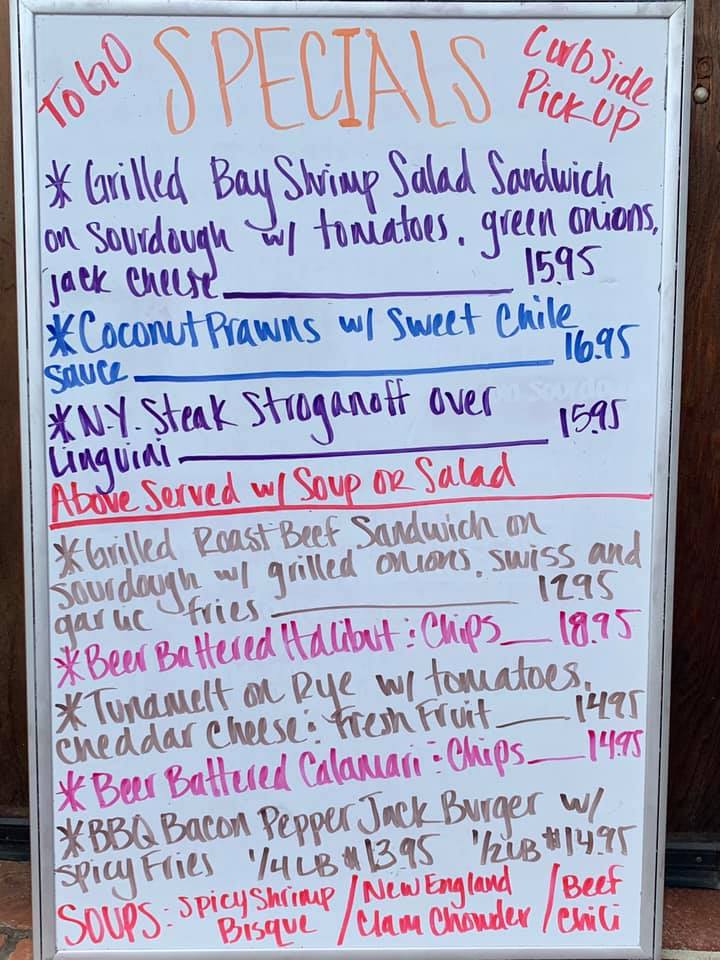 To GO SPECIALS Curb Side
Pick UP
* Grilled Bay Shrimp Salad Sandwich
on Sourdough w/ tomatoes, green onions,
jack cheese 15.95
* Coconut Prawns w/ Sweet Chile
sauce 16.95
* N.Y. Steak Stroganoff over
Linguini 15.95
Above Served w/ Soup or Salad
* Grilled Roast Beef Sandwich on
Sourdough w/ grilled onions, swiss and
garlic fries 12.95
* Beer Battered Halibut : Chips 18.95
* Tunamelt on Rye w/ tomatoes,
cheddar cheese : Fresh Fruit 14.95
* Beer Battered Calamari : Chips 14.95
* BBQ Bacon Pepper Jack Burger w/
Spicy Fries 1/4 LB $13.95 1/2 LB $14.95
SOUPS: Spicy Shrimp / New England / Beef
Bisque Clam Chowder Chili